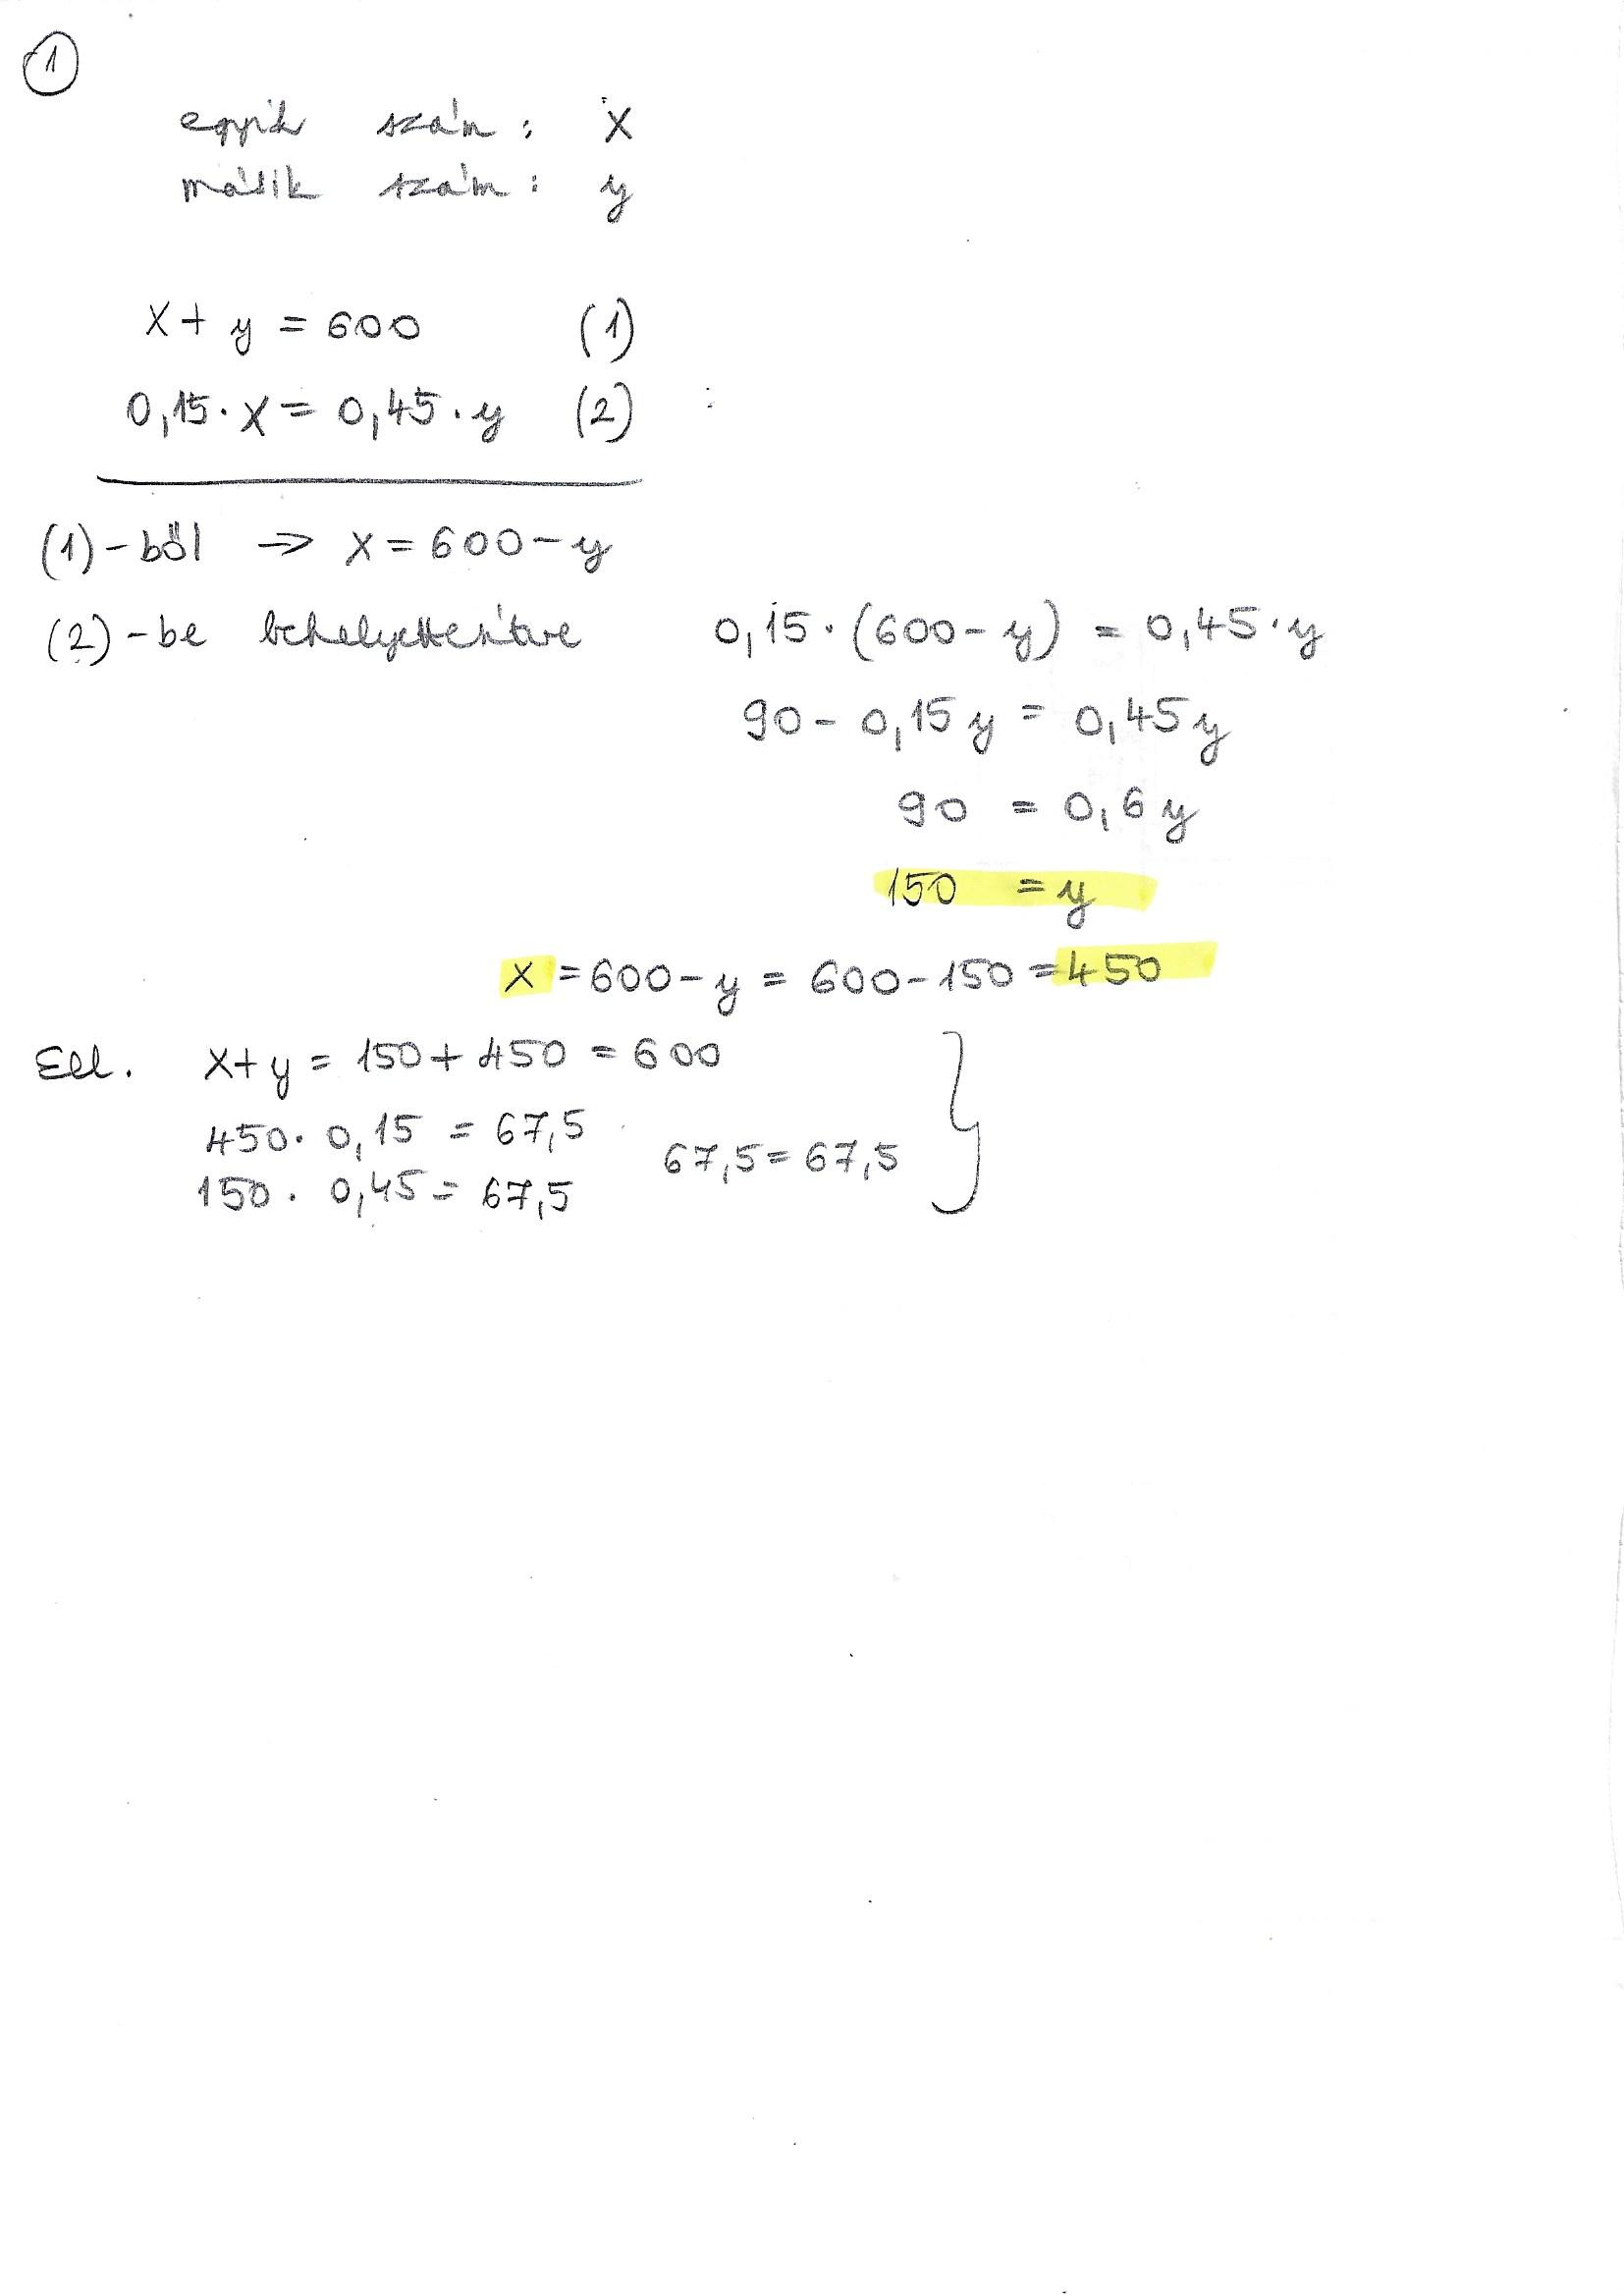 1
egyik szám: x
másik szám: y
x + y = 600 (1)
0,15 · x = 0,45 · y (2)
(1)-ből => x = 600 - y
(2)-be behelyettesítve 0,15 · (600 - y) = 0,45 · y
90 - 0,15 y = 0,45 y
90 = 0,6 y
150 = y
x = 600 - y = 600 - 150 = 450
Ell. x + y = 150 + 450 = 600
450 · 0,15 = 67,5
67,5 = 67,5
150 · 0,45 = 67,5